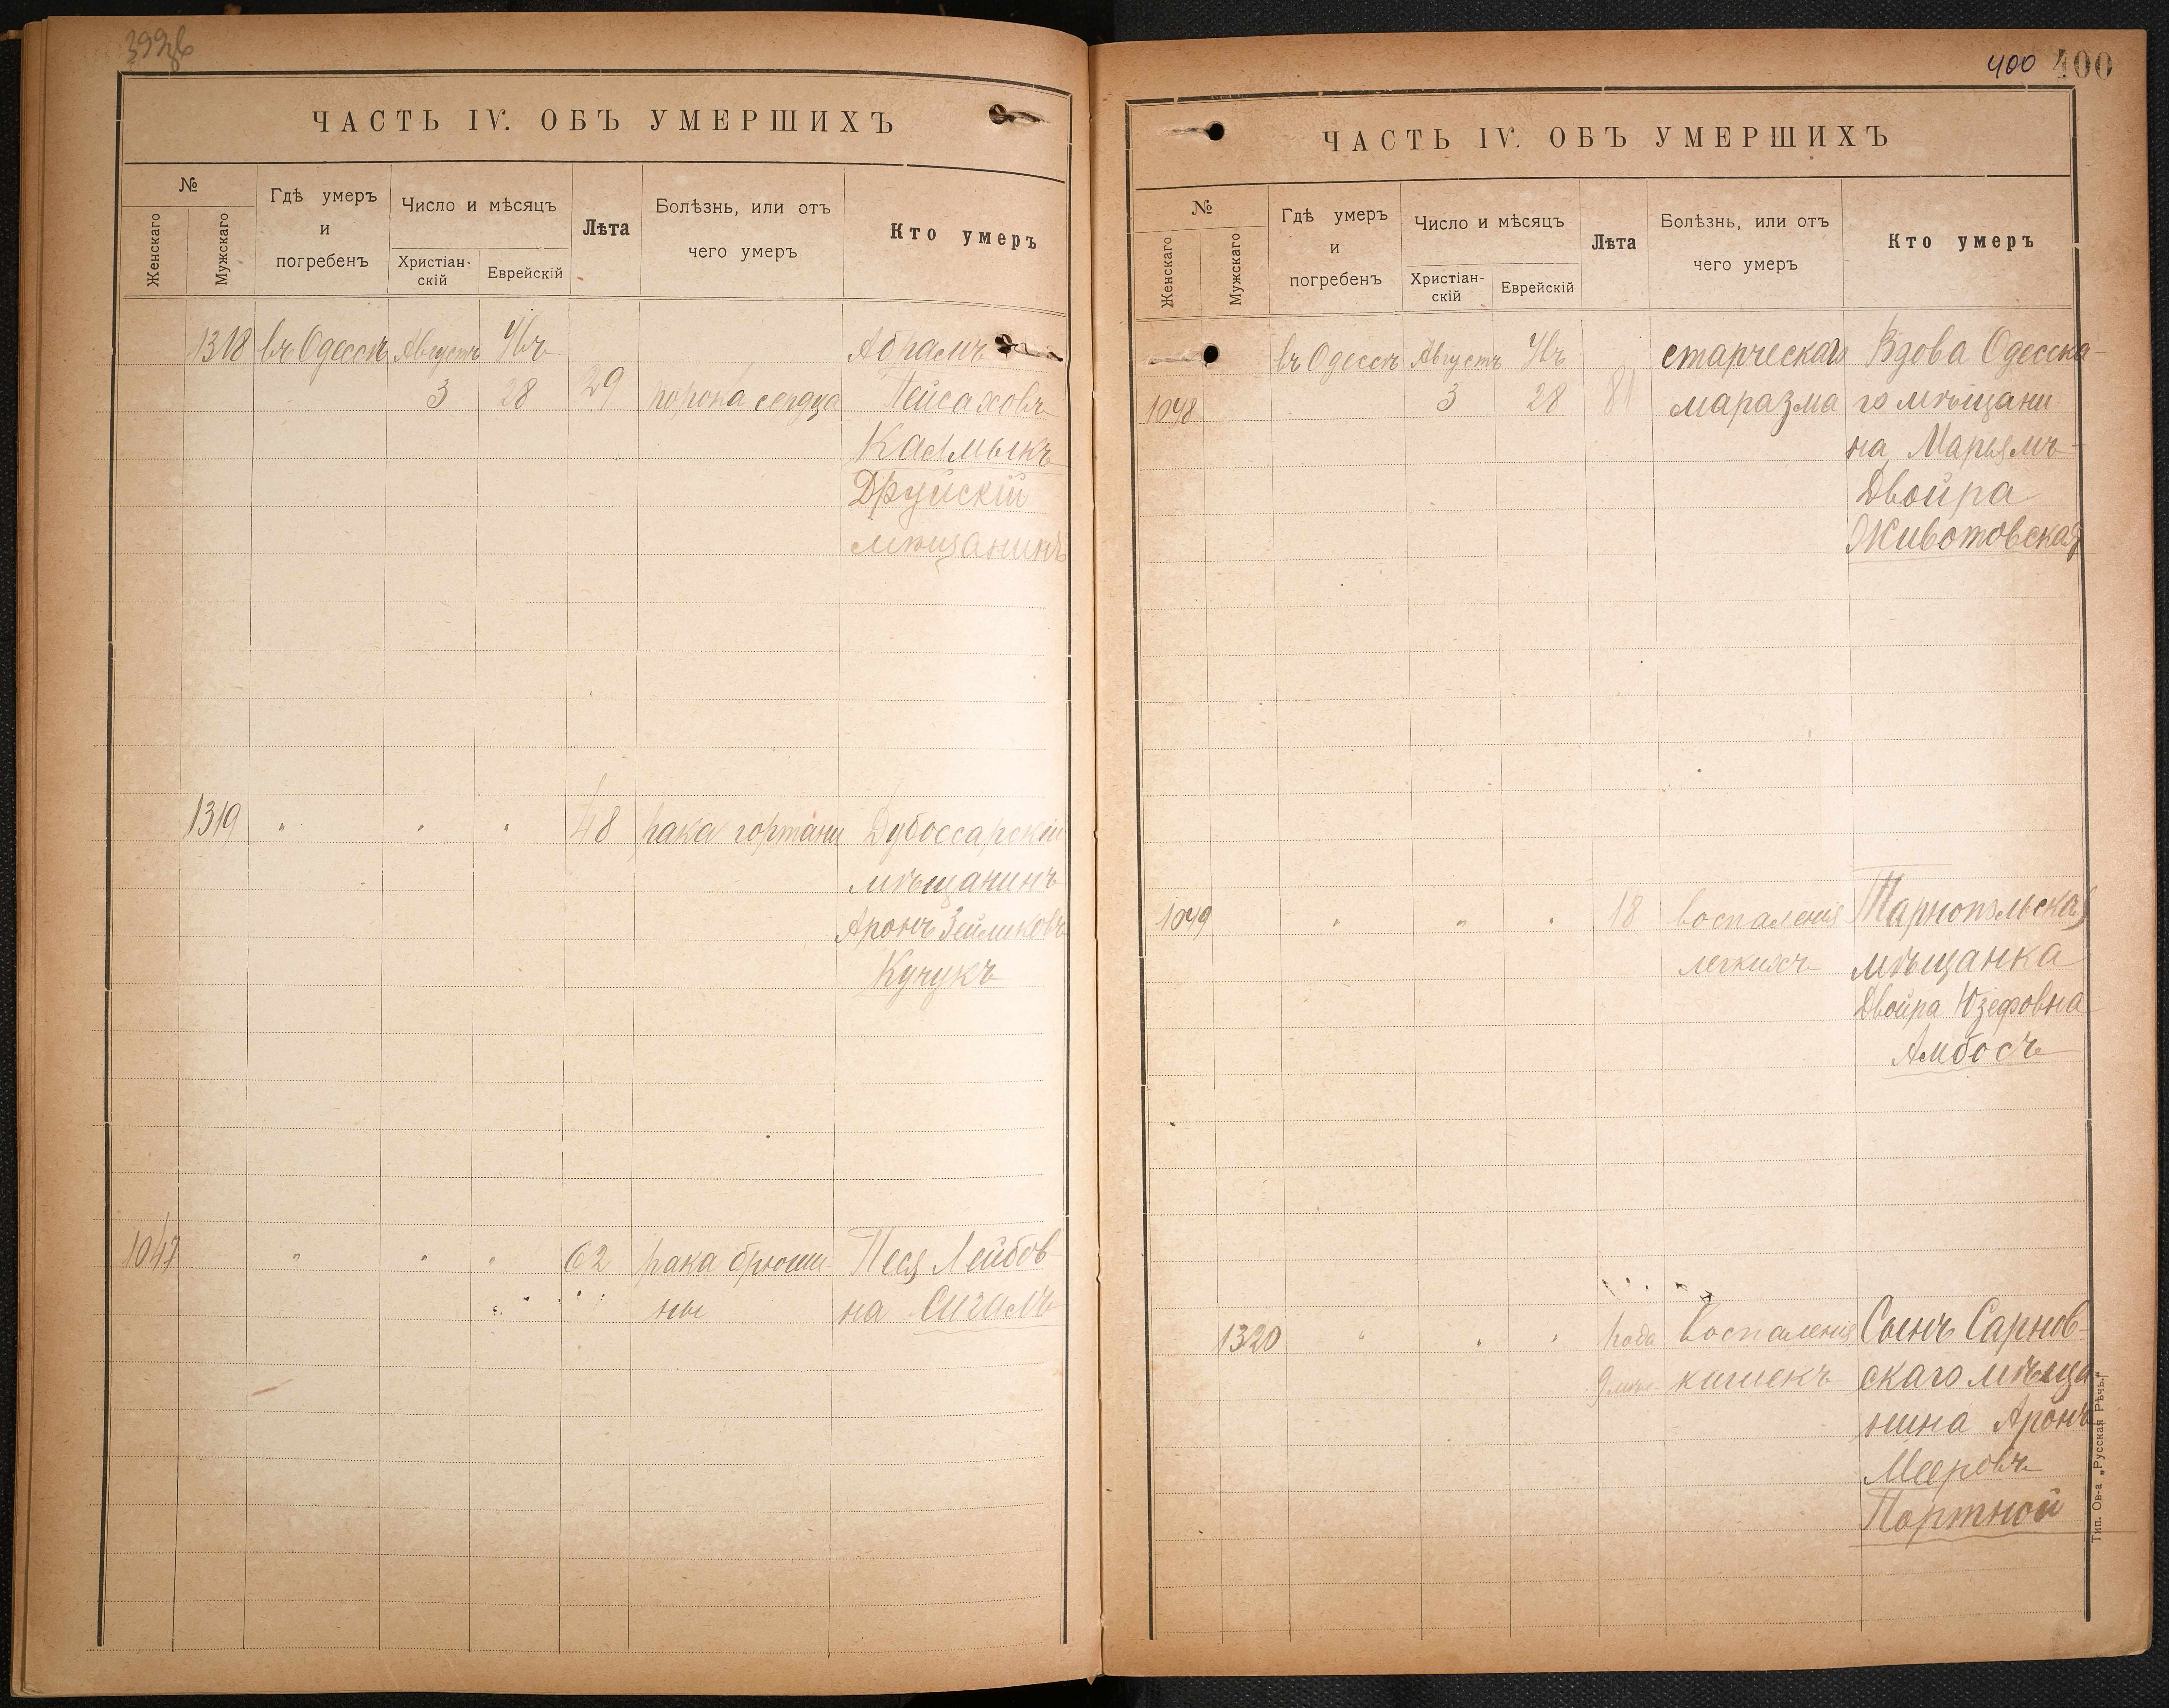 ЧАСТЬ IV. ОБЪ УМЕРШИХЪ
№
Женскаго
Мужскаго
Гдѣ умеръ
и
погребенъ
Число и мѣсяцъ
Христіан-
скій
Еврейскій
Лѣта
Болѣзнь, или отъ
чего умеръ
Кто умеръ
1318 въ Одессѣ Августъ Абрамъ
3 28 29 порока сердца Пейсаховъ
Калмыкъ
Друйскій
мѣщанинъ
1319 " " " 48 рака гортани Дубоссарскій
мѣщанинъ
Аронъ Зейликовъ
Кучукъ
1047 " " " 62 рака брюши- Песя Лейбов-
ны на Сигалъ
400 400
ЧАСТЬ IV. ОБЪ УМЕРШИХЪ
№
Женскаго
Мужскаго
Гдѣ умеръ
и
погребенъ
Число и мѣсяцъ
Христіан-
скій
Еврейскій
Лѣта
Болѣзнь, или отъ
чего умеръ
Кто умеръ
въ Одессѣ Августъ старческаго Вдова Одесска-
1048 3 28 81 маразма го мѣщани
на Марьямъ-
Двойра
Животовская
1049 " " " 18 воспаленія Тарнопольская
легкихъ мѣщанка
Двойра Юзефовна
Амбосъ
1320 " " " года воспаленія Сынъ Сарнов-
9 мѣс. кишекъ скаго мѣща
нина Аронъ
Мееровъ
Портной
Тип. Ов-а „Русская Рѣчь."